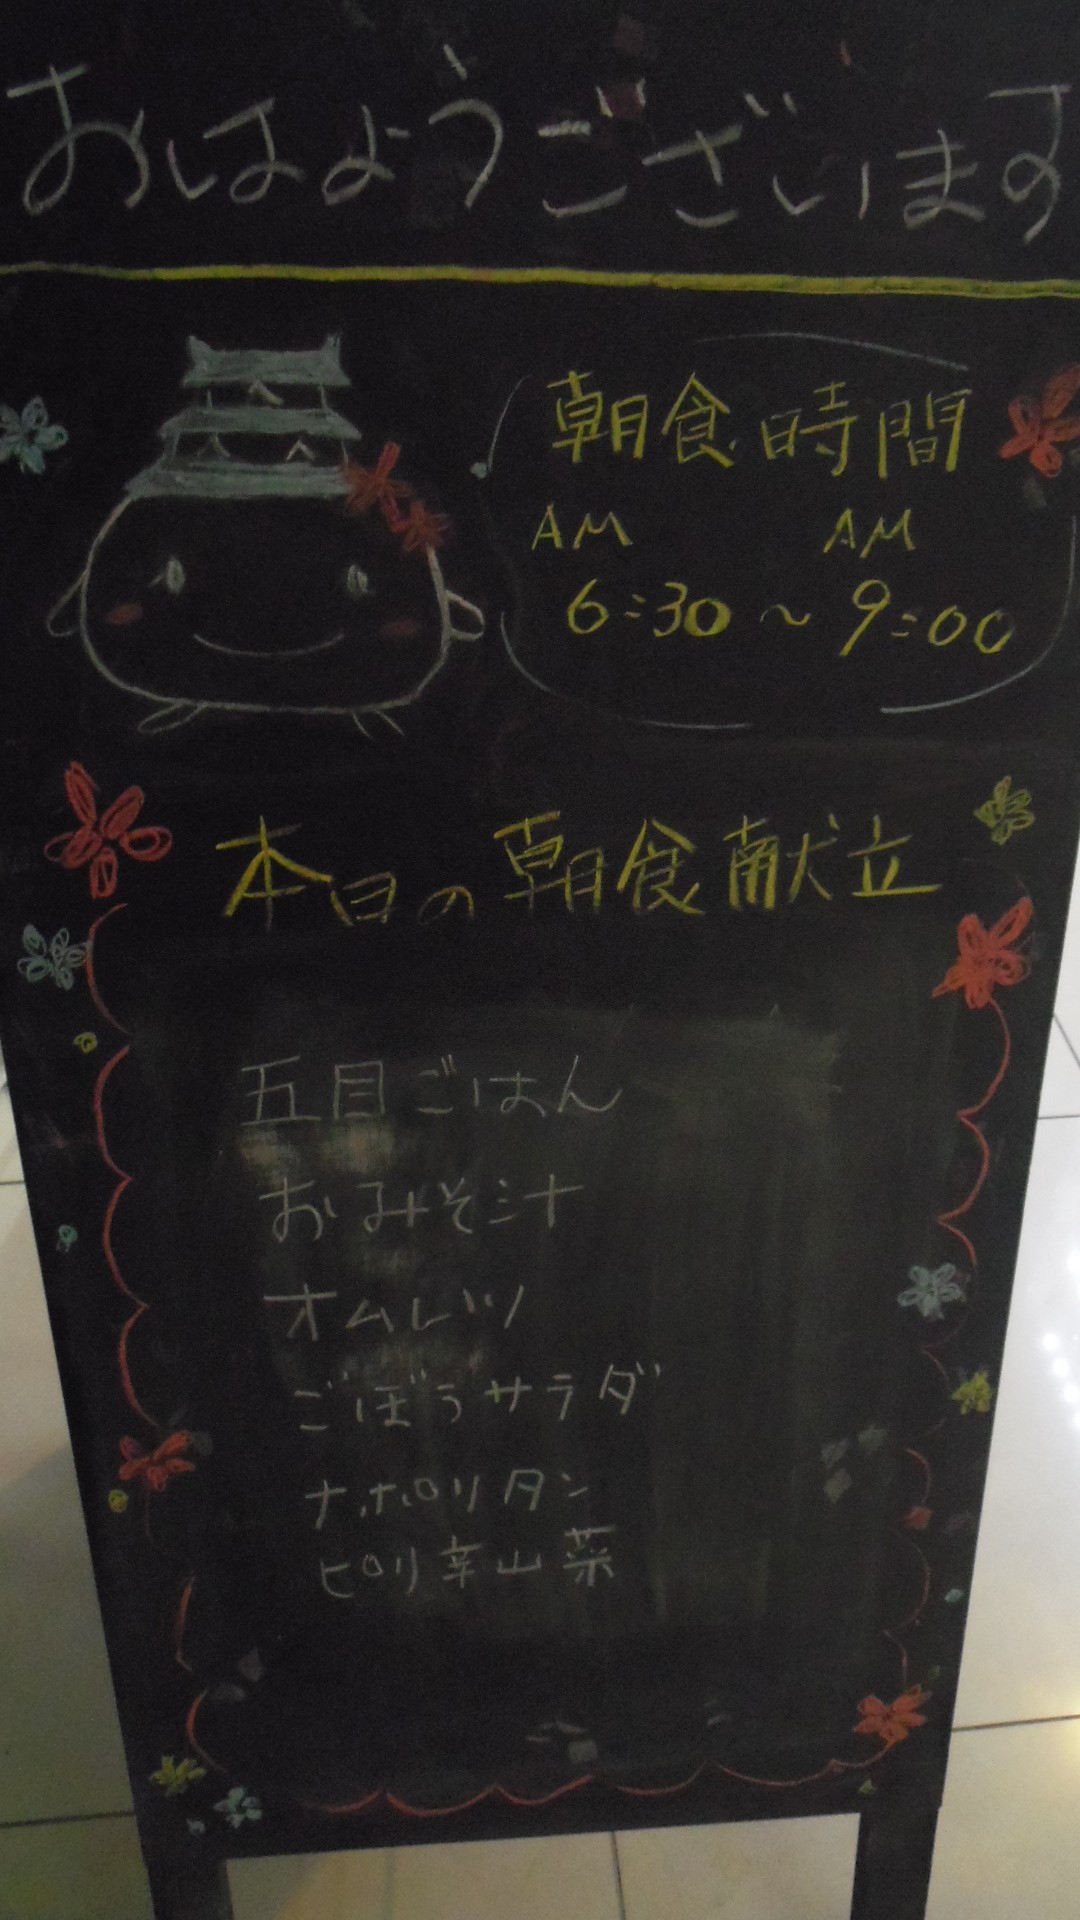 おはようございます
朝食時間
AM AM
6:30〜9:00
本日の朝食献立
五目ごはん
おみそ汁
オムレツ
ごぼうサラダ
ナポリタン
ピリ辛山菜